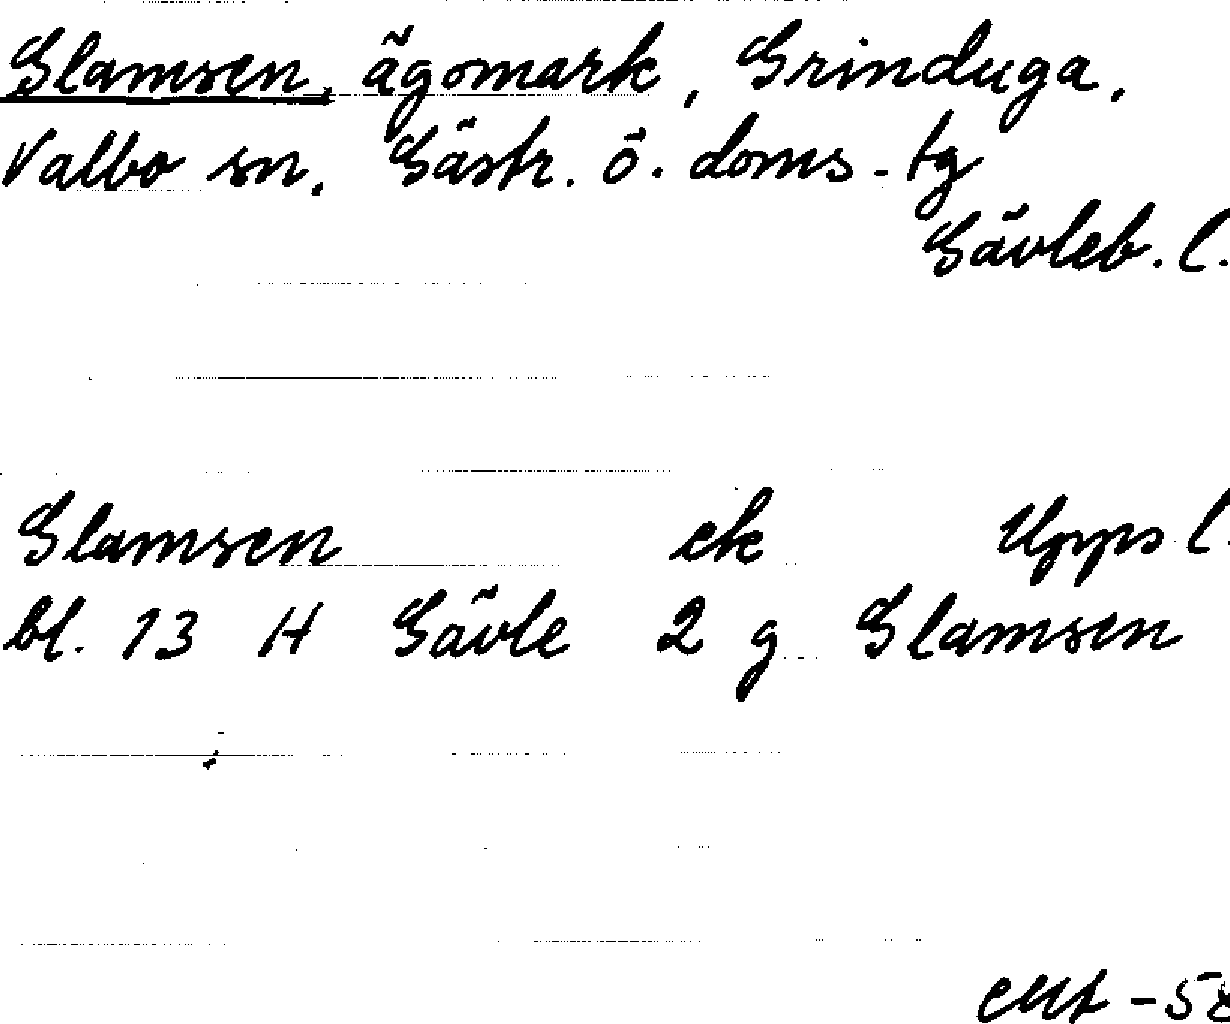 Glamsen, ägomark, Grinduga,
Valbo sn, Gästr. ö. doms-tg
Gävleb. l.
Glamsen ek Upps l.
bl. 13 H Gävle 2 g Glamsen